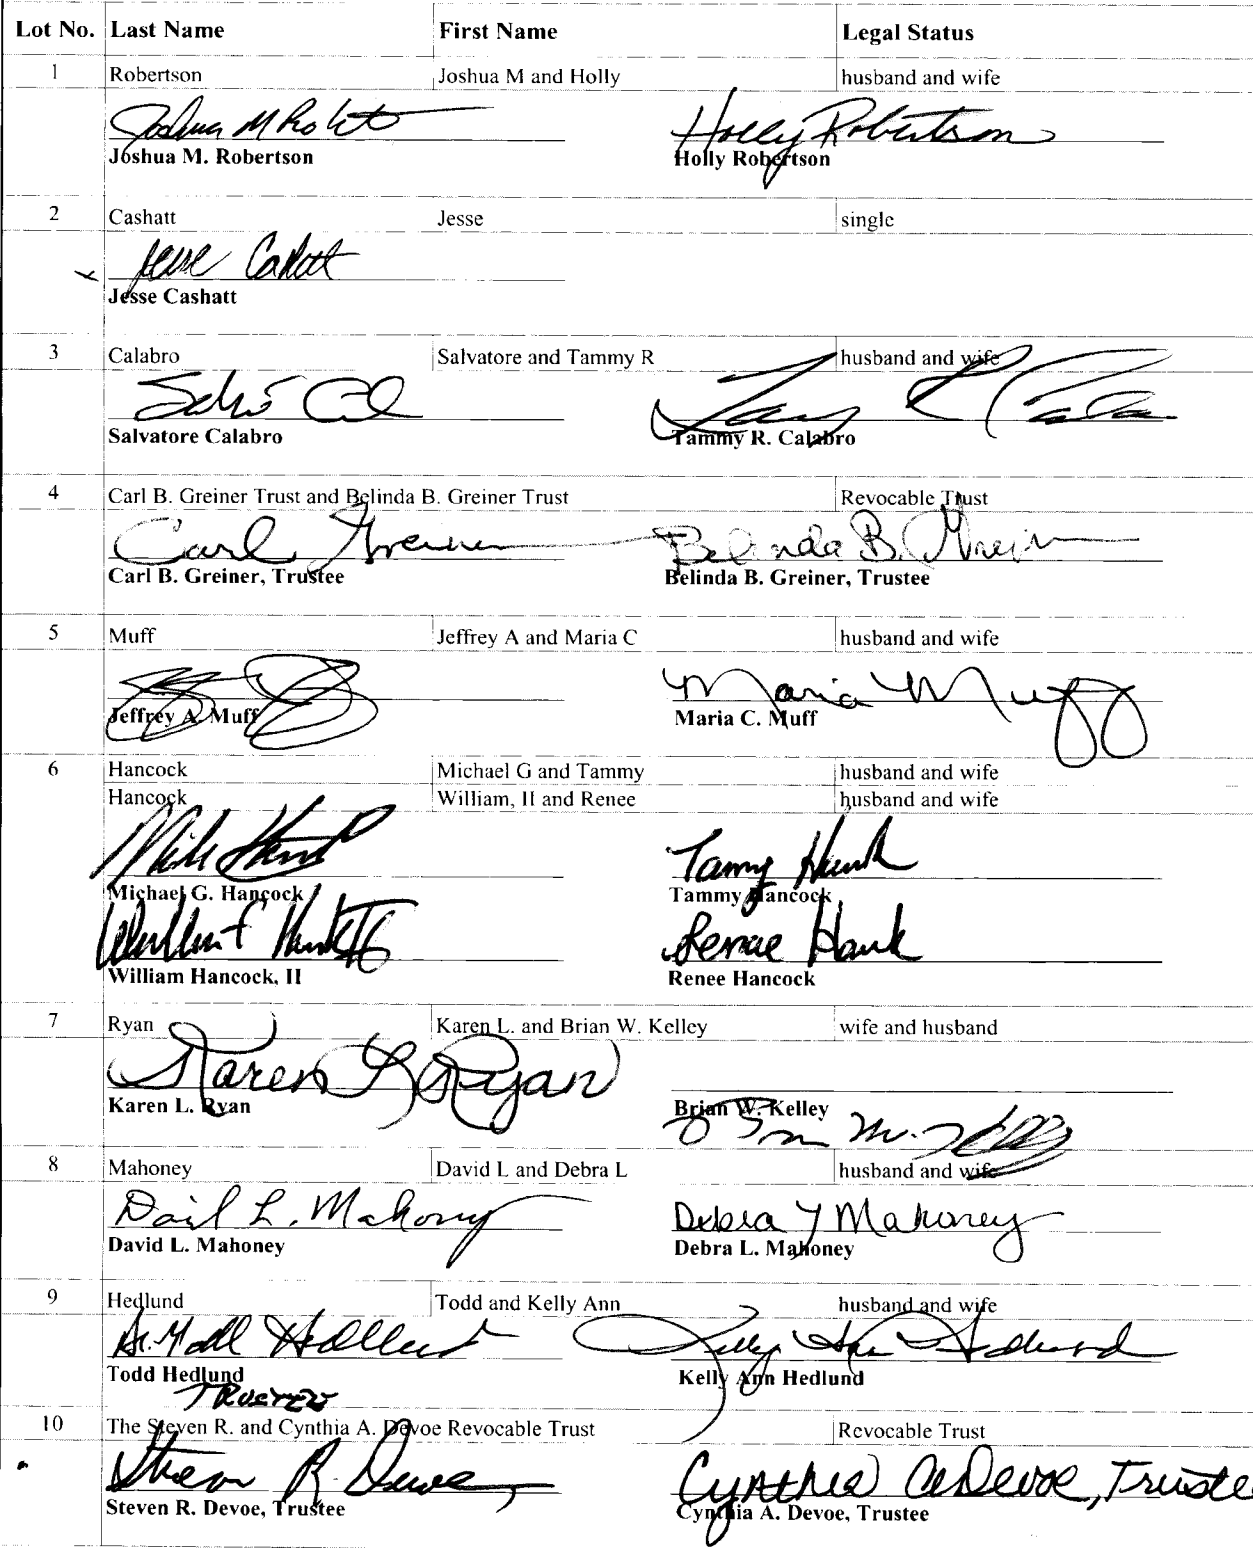 Lot No. Last Name First Name Legal Status
1 Robertson Joshua M and Holly husband and wife
Joshua M Holly Robertson
Joshua M. Robertson Holly Robertson
2 Cashatt Jesse single
Jesse
Jesse Cashatt
3 Calabro Salvatore and Tammy R husband and wife
Salvatore Calabro Tammy R. Calabro
4 Carl B. Greiner Trust and Belinda B. Greiner Trust Revocable Trust
Carl Greiner Belinda B. Greiner
Carl B. Greiner, Trustee Belinda B. Greiner, Trustee
5 Muff Jeffrey A and Maria C husband and wife
Maria Muff
Jeffrey A. Muff Maria C. Muff
6 Hancock Michael G and Tammy husband and wife
Hancock William, II and Renee husband and wife
Mike Tammy
Michael G. Hancock Tammy Hancock
Renee
William Hancock, II Renee Hancock
7 Ryan Karen L. and Brian W. Kelley wife and husband
Karen L Ryan
Karen L. Ryan Brian W. Kelley
8 Mahoney David L and Debra L husband and wife
David L. Mahoney Debra Mahoney
David L. Mahoney Debra L. Mahoney
9 Hedlund Todd and Kelly Ann husband and wife
Hedlund Kelly Ann Hedlund
Todd Hedlund Kelly Ann Hedlund
TRUSTEE
10 The Steven R. and Cynthia A. Devoe Revocable Trust Revocable Trust
Steven R. Devoe, Cynthia A Devoe, Trustee
Steven R. Devoe, Trustee Cynthia A. Devoe, Trustee